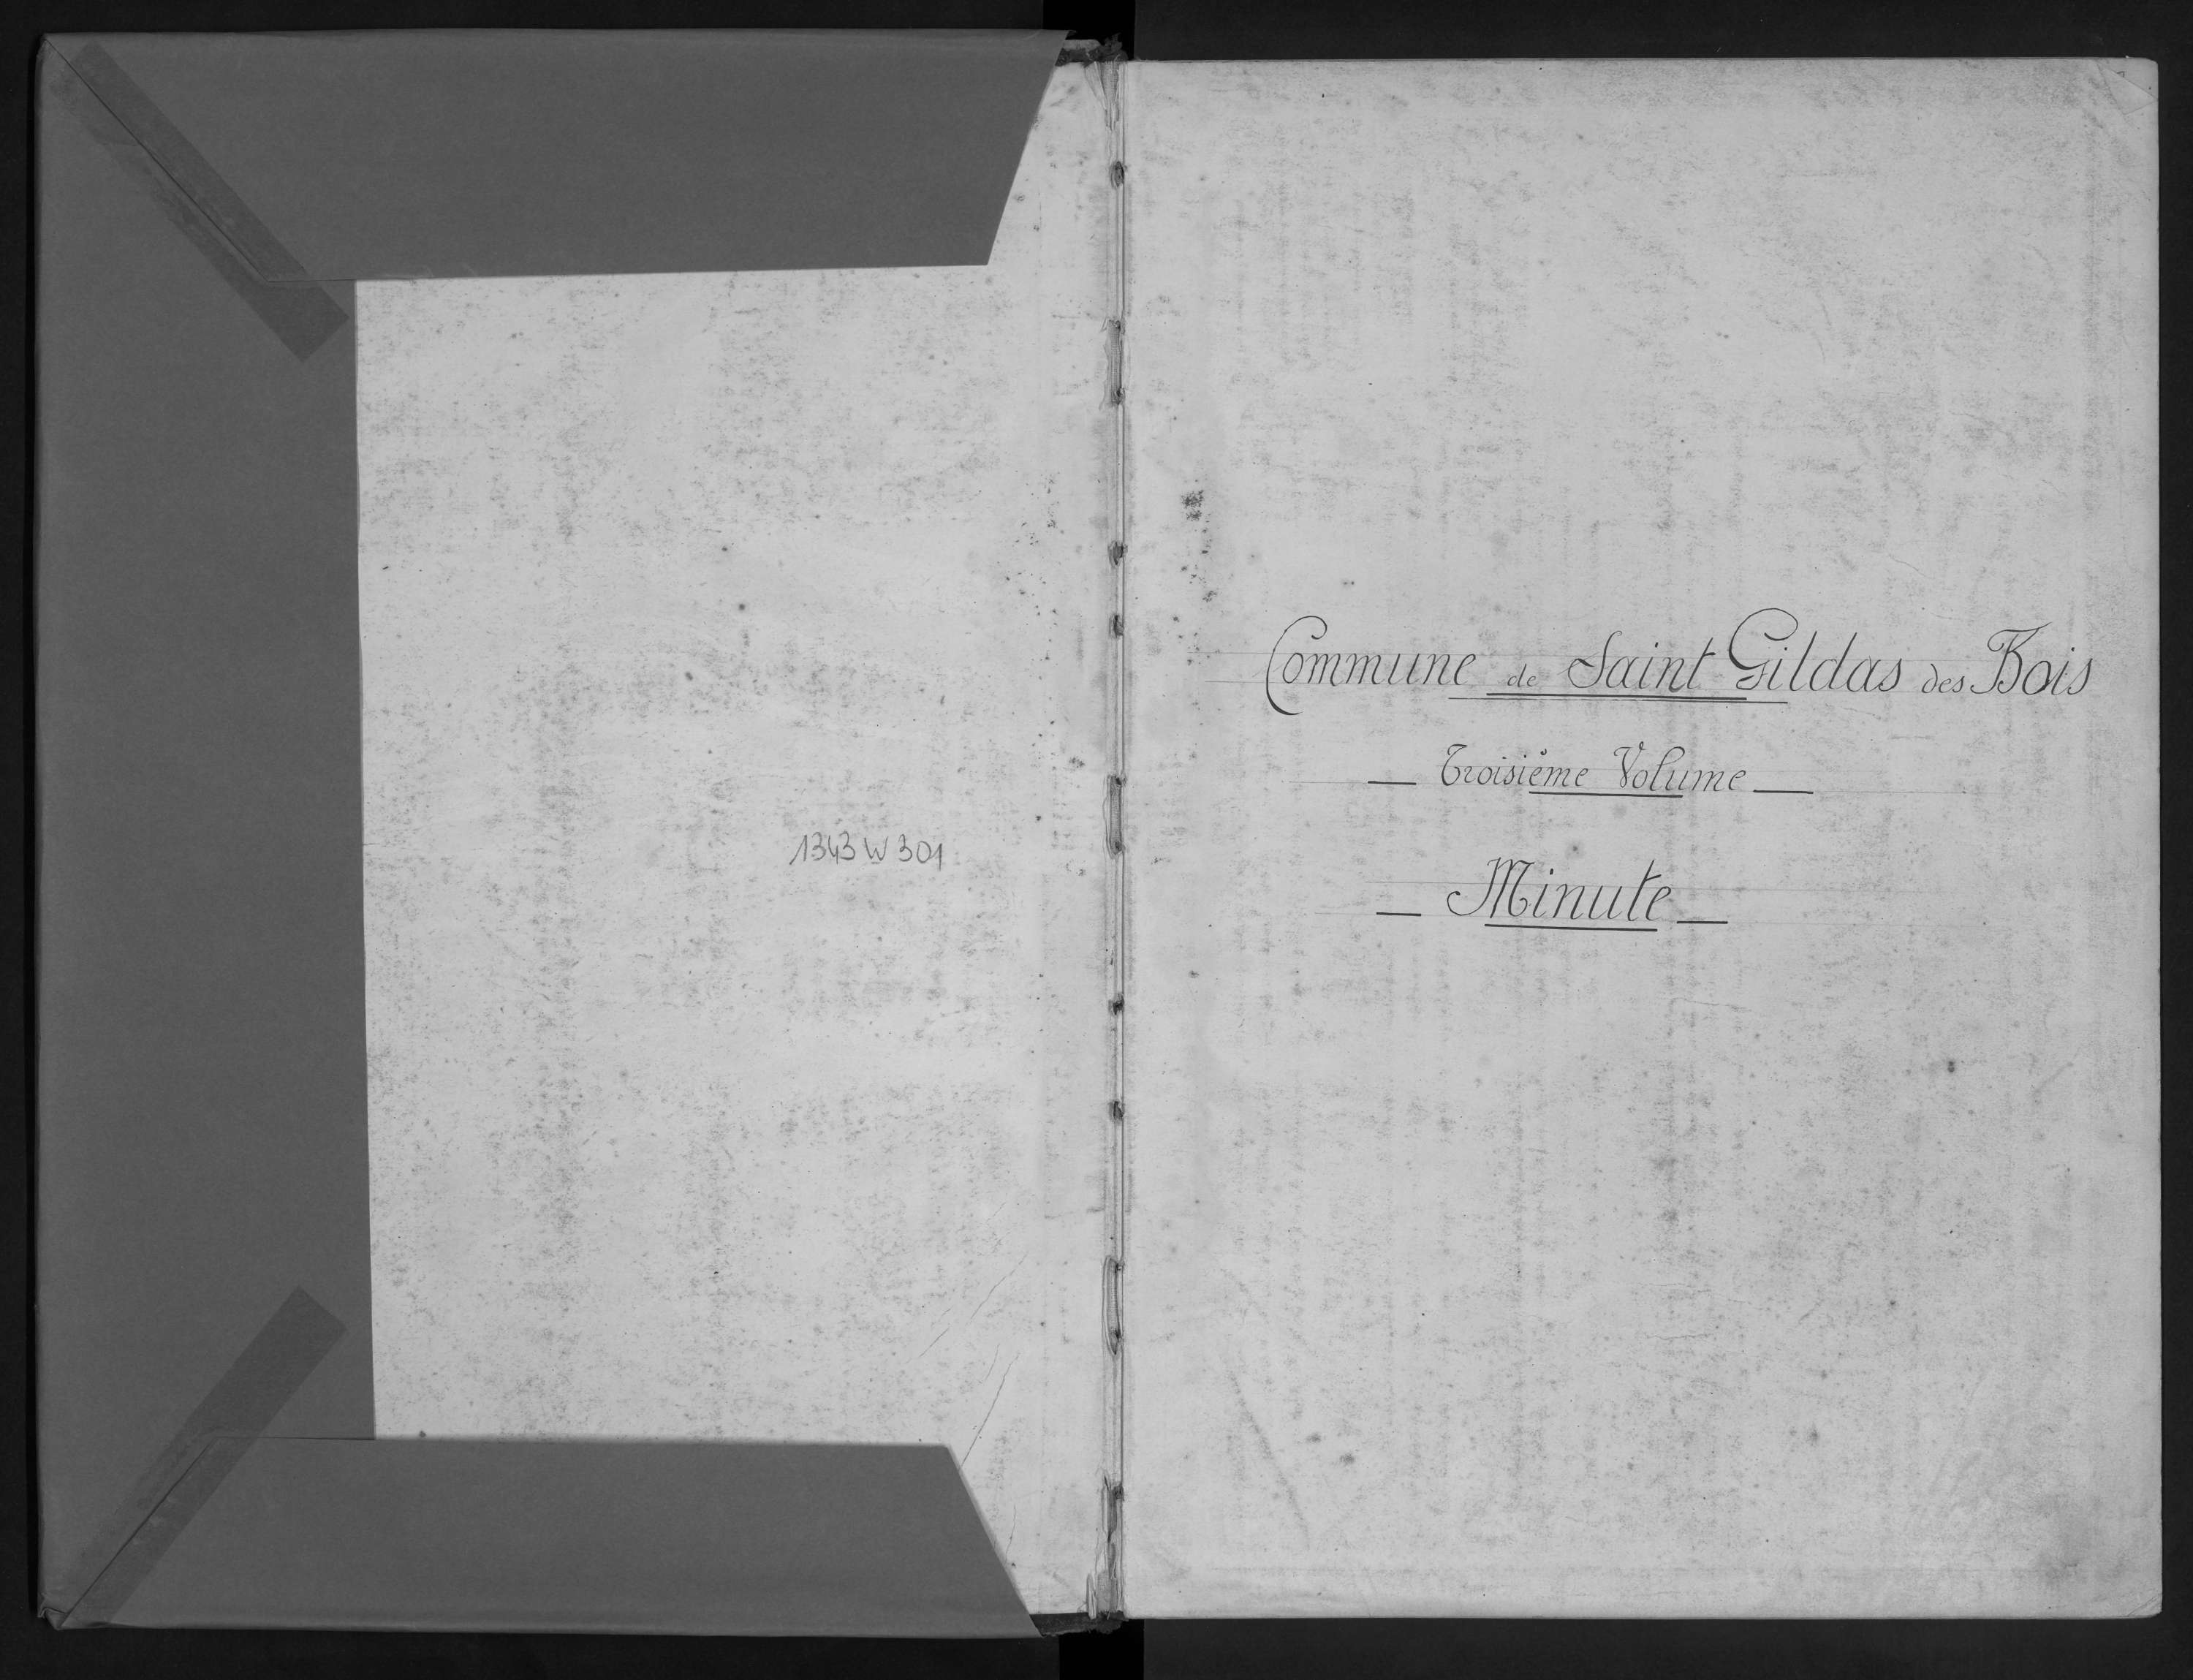 1343 W 301
Commune de Saint Gildas des Bois
— Troisième Volume —
— Minute —